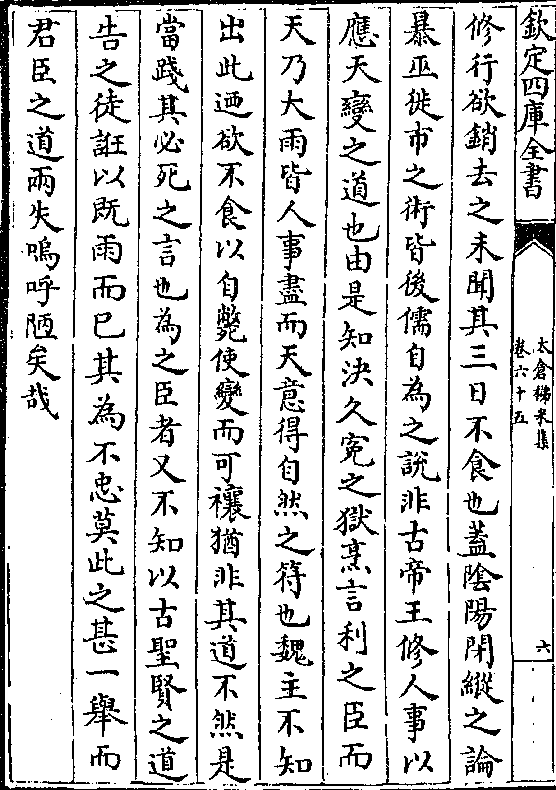 欽定四庫全書
太倉稊米集
卷六十五
六
修行欲銷去之未聞其三日不食也蓋陰陽閉縱之論
暴巫徙市之術皆後儒自為之說非古帝王修人事以
應天變之道也由是知決久寃之獄烹言利之臣而
天乃大雨皆人事盡而天意得自然之符也魏主不知
出此迺欲不食以自斃使變而可禳猶非其道不然是
當踐其必死之言也為之臣者又不知以古聖賢之道
告之徒誑以既雨而已其為不忠莫此之甚一舉而
君臣之道兩失嗚呼陋矣哉